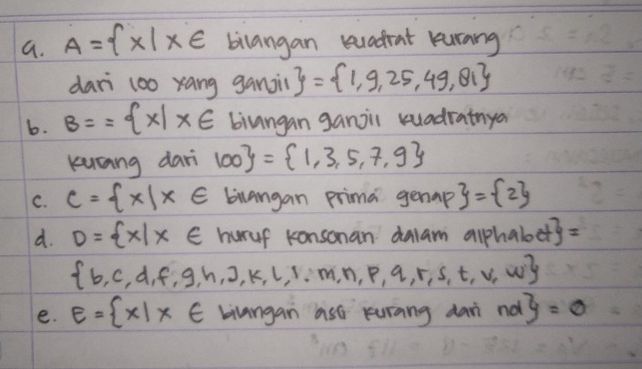 a. A = {x | x ∈ bilangan kuadrat kurang
dari 100 yang ganjil} = {1, 9, 25, 49, 81}
b. B = = {x | x ∈ bilangan ganjil kuadratnya
kurang dari 100} = {1, 3, 5, 7, 9}
c. C = {x | x ∈ bilangan prima genap} = {2}
d. D = {x | x ∈ huruf konsonan dalam alphabet} =
{b, c, d, f, g, h, J, k, l, m, n, p, q, r, s, t, v, w}
e. E = {x | x ∈ bilangan asli kurang dari nol} = 0